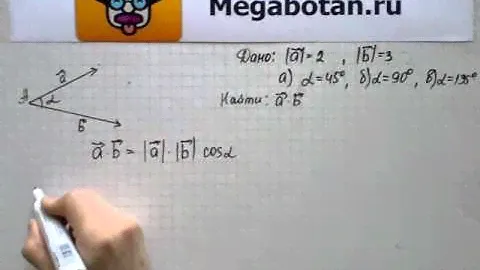 Megabotan.ru
Дано: |a⃗|=2 , |b⃗|=3
а) α=45°, б) α=90°, в) α=135°
Найти: a⃗·b⃗
a⃗
A
α
b⃗
a⃗·b⃗ = |a⃗|·|b⃗| cosα